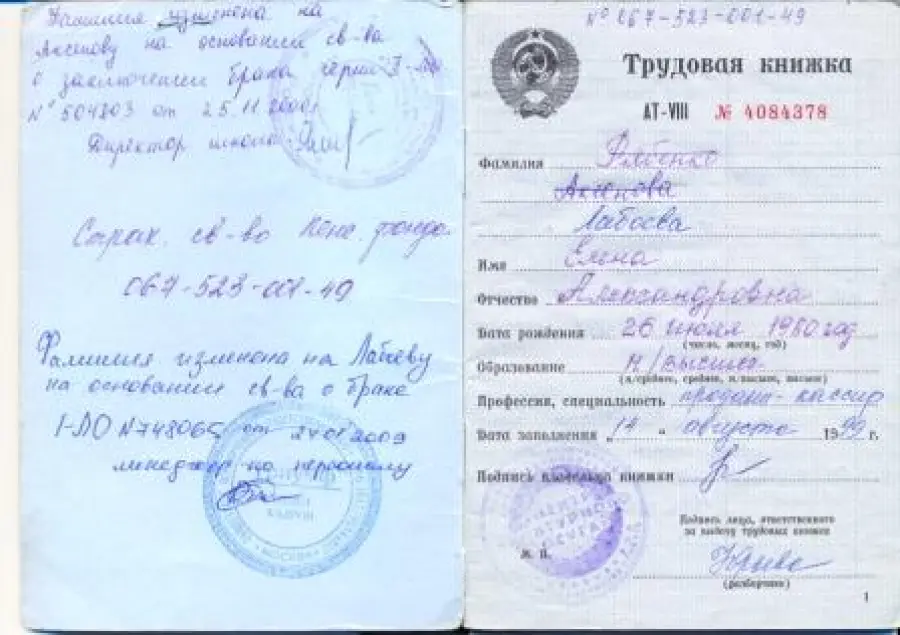 Фамилия изменена на
Аксенову на основании св-ва
о заключении брака серии
№ 504803 от 25.11.2000г
Директор школы
Страх. св-во Пенс. фонда
067-523-001-49
Фамилия изменена на Лабоеву
на основании св-ва о браке
I-ЛО №748065 от 24 01 2009
менеджер по персоналу
№ 067-523-001-49
Трудовая книжка
АТ-VIII № 4084378
Фамилия Рябенко
Аксенова
Лабоева
Имя Елена
Отчество Александровна
Дата рождения 26 июля 1980 год
(число, месяц, год)
Образование н/высшее
(н/среднее, среднее, н/высшее, высшее)
Профессия, специальность продавец-кассир
Дата заполнения „14 “ августа 1999 г.
Подпись владельца книжки
Подпись лица, ответственного
за выдачу трудовых книжек
М. П.
(разборчиво)
1